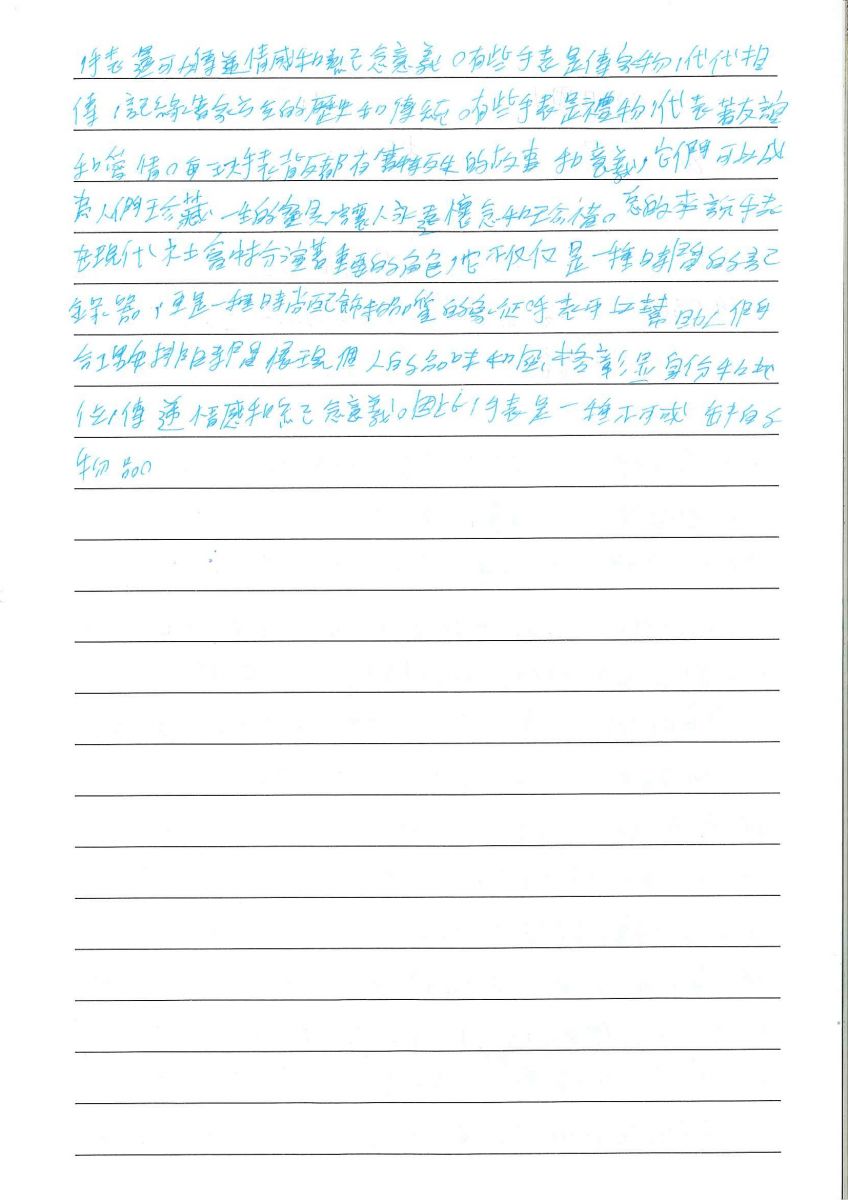 手表還可以傳遞情感和紀念意義。有些手表是傳家物,代代相
傳,記錄著家族的歷史和傳統。有些手表是禮物,代表著友誼
和愛情。每一块手表背后都有著特殊的故事和意義,它們可以成
為人們珍藏一生的寶貝,讓人永遠懷念和珍惜。总的来說手表
在現代社會中扮演著重要的角色,它不仅仅是一種時間的記
錄器,更是一種時尚配飾和品質的象征。手表可以幫助人們
合理安排時間,展現個人的品味和風格,彰显身份和地
位,傳遞情感和紀念意義。因此,手表是一種不可或缺的
物品。